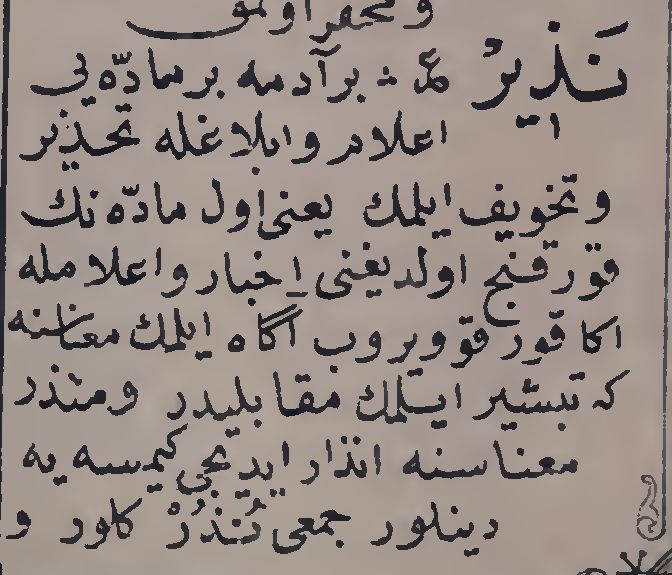 و تحقير اولمق
نَذِيرْ عر برآدمه برمادّه يى
اعلام وابلاغله تحذير
وتخويف ايلمك يعنى اول مادّه نك
قورقنج اولديغنى اخبار واعلامله
اكا قورقو ويروب آگاه ايلمك معناسنه
كه تبشير ايتلمك مقابليدر ومنذر
معناسنه انذار ايديجى كيمسه يه
دينلور جمعى نُذُرْ كلور و